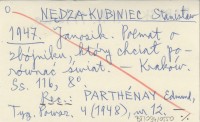 NĘDZA-KUBINIEC Stanisław
1947. Janosik. Poemat o
zbójniku, który chciał po-
równać świat. – Kraków.
Ss. 116, 8°
Rec.: PARTHÉNAY Edmund,
Tyg. Powsz. 4 (1948), nr 12.